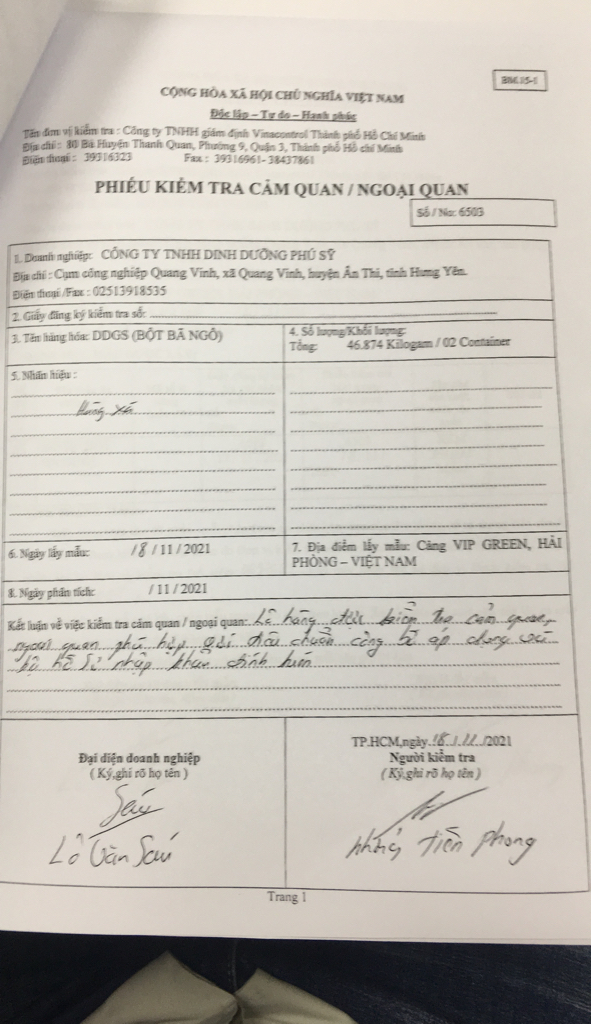 BM.15-1
CỘNG HÒA XÃ HỘI CHỦ NGHĨA VIỆT NAM
Độc lập – Tự do – Hạnh phúc
Tên đơn vị kiểm tra : Công ty TNHH giám định Vinacontrol Thành phố Hồ Chí Minh
Địa chỉ : 80 Bà Huyện Thanh Quan, Phường 9, Quận 3, Thành phố Hồ chí Minh
Điện thoại : 39316323 Fax : 39316961- 38437861
PHIẾU KIỂM TRA CẢM QUAN / NGOẠI QUAN
Số / No: 6503
1. Doanh nghiệp: CÔNG TY TNHH DINH DƯỠNG PHÚ SỸ
Địa chỉ : Cụm công nghiệp Quang Vinh, xã Quang Vinh, huyện Ân Thi, tỉnh Hưng Yên.
Điện thoại /Fax : 02513918535
2. Giấy đăng ký kiểm tra số:
3. Tên hàng hóa: DDGS (BỘT BÃ NGÔ)
4. Số lượng/Khối lượng:
Tổng: 46.874 Kilogam / 02 Container
5. Nhãn hiệu :
Hàng xá
6. Ngày lấy mẫu: 18 / 11 / 2021
7. Địa điểm lấy mẫu: Cảng VIP GREEN, HẢI
PHÒNG – VIỆT NAM
8. Ngày phân tích: / 11 / 2021
Kết luận về việc kiểm tra cảm quan / ngoại quan: Lô hàng được kiểm tra cảm quan,
ngoại quan phù hợp tiêu chuẩn công bố áp dụng và
hồ sơ nhập khẩu đính kèm
TP.HCM,ngày 18/11/2021
Đại diện doanh nghiệp
( Ký,ghi rõ họ tên )
Người kiểm tra
( Ký,ghi rõ họ tên )
Sáu
Lô Văn Sáu
tiền phong
Trang 1